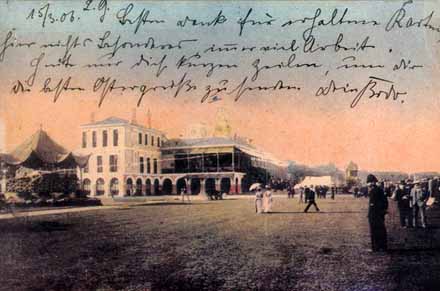 15/3.06. L.G. Besten Dank für erhaltene Karten
hier nichts besonderes, immer viel Arbeit.
Heute nur diese kurzen Zeilen, um dir
die besten Ostergrüße zu senden. Dein Bodo.